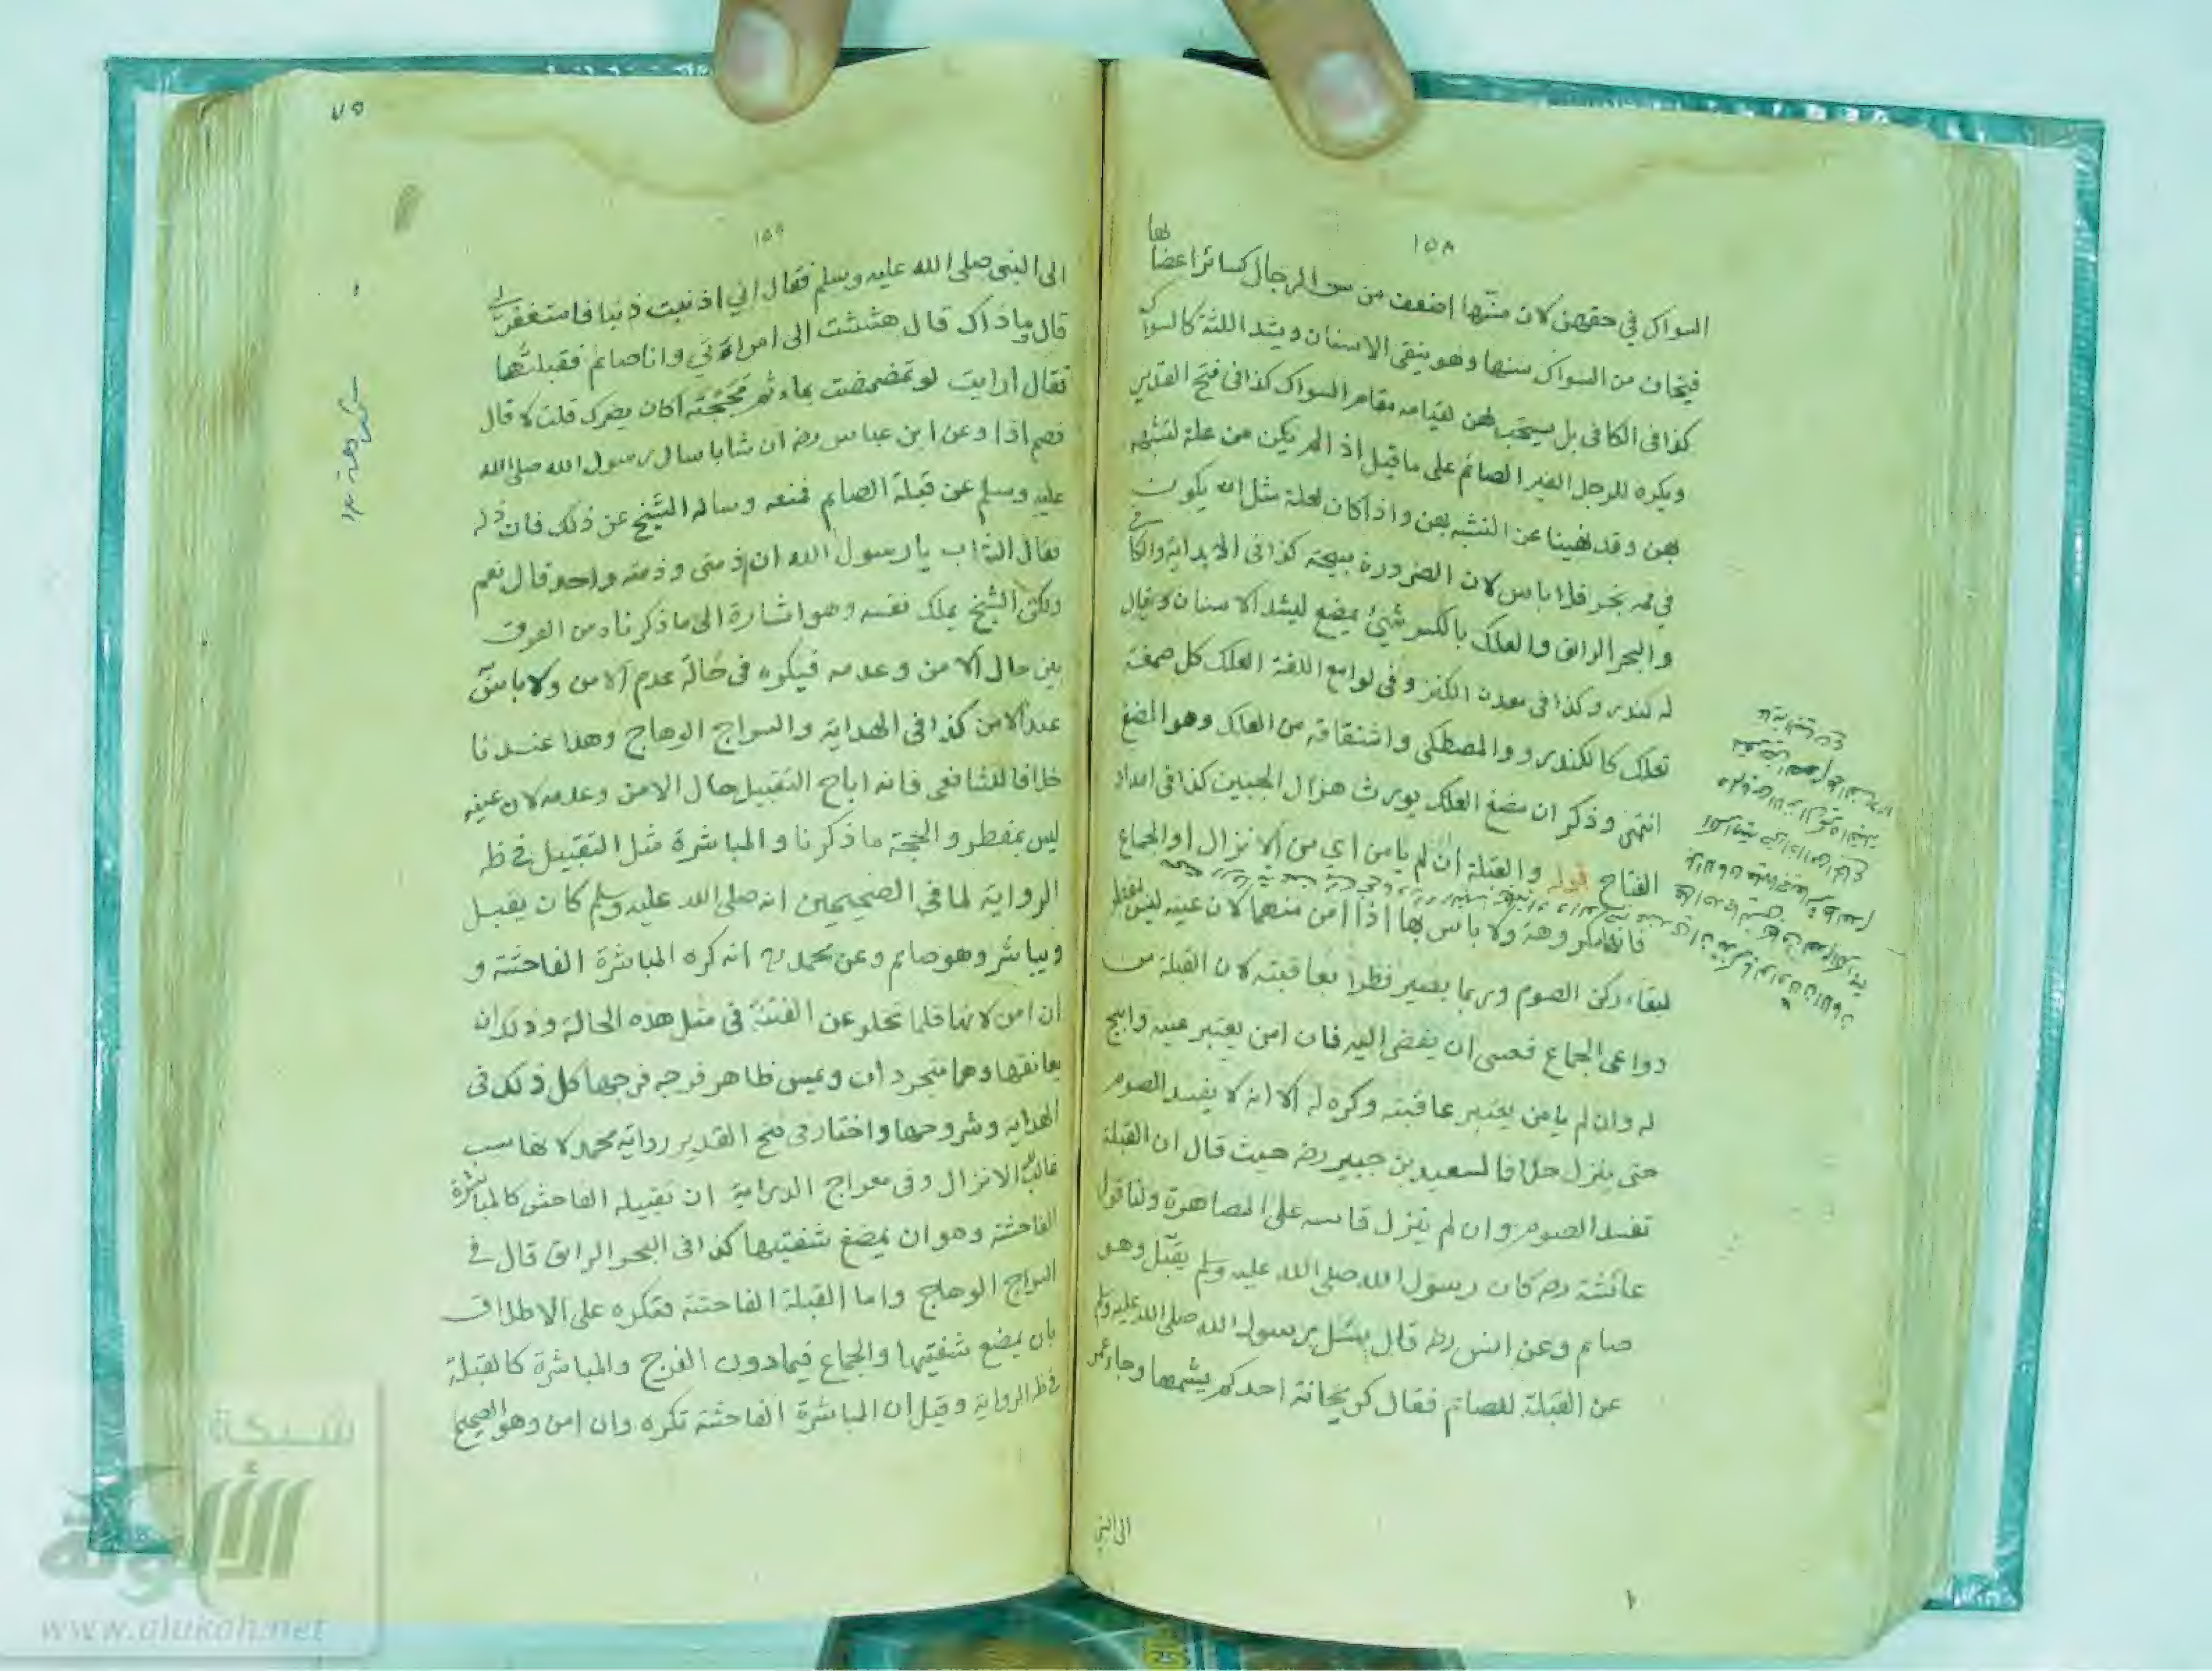 ١٥٨
السواك في حقهن لان سنّها اضعف من سن الرجال كسائر اعضائها
فيخاف من السواك سنها وهو ينقى الاسنان ويشد اللثة كالسواك
كذا فى الكافى بل يستحب لهن لقيامه مقام السواك كذا فى فتح القدير
ويكره للرجل الغير الصائم على ما قيل اذ الم يكن من علة لتشبهه
بهن وقد نهينا عن التشبه بهن واذا كان لعلة مثل انه يكون
في فمه بخر فلا باس لان الضرورة مبيحة كذا فى الابداية والكافى
والبحر الرائق والعلك بالكسر شيئ يمضغ ليشد الاسنان ويقال
له كندر وكذا فى معدن الكنز وفى لوامع اللغة العلك كل صمغة
تعلك كالكندر ووالمصطكى واشتقاقه من العلك وهو المضغ
انتهى وذكر ان مضغ العلك يورث هزال الجبين كذا فى امداد
الفتاح قوله والقبلة ان لم يامن اي من الانزال او الجماع
فانها مكروهة ولا باس بها اذا امن منهما لان عينه ليس بمفطر
لبقاء ركن الصوم وربما يصير فطرا بعاقبته لان القبلة من
دواعى الجماع فعسى ان يفضى اليه فان امن يعتبر عينه وابيح
له وان لم يامن يعتبر عاقبته وكره له الا انه لا يفسد الصوم
حتى ينزل خلافا لسعيد بن جبير رضه حيث قال ان القبلة
تفسد الصوم وان لم ينزل قاسه على المصاهرة ولنا قول
عائشة رضه كان رسول الله صلى الله عليه وسلم يقبّل وهو
صائم وعن انس رضه قال سئل رسول الله صلى الله عليه وسلم
عن القبلة للصائم فقال كريحانة احدكم يشمها وجاء عمر
الى النبي
٧٥
١٥٩
الى النبى صلى الله عليه وسلم فقال اني اذنبت ذنبا فاستغفر لى
قال وما ذاك قال هششت الى امراتي وانا صائم فقبلتها
فقال ارايت لو تمضمضت بماء ثم مججته اكان يضرك قلت لا قال
فصم اذا وعن ابن عباس رضه ان شابا سال رسول الله صلى الله
عليه وسلم عن قبلة الصائم فمنعه وساله الشيخ عن ذلك فاذن له
فقال الشاب يا رسول الله ان ذمتى وذمته واحد قال نعم
ولكن الشيخ يملك نفسه وهو اشارة الى ما ذكرناه من الفرق
بين حال الامن وعدمه فيكره فى حالة عدم الامن ولا باس
عند الامن كذا فى الهداية والسراج الوهاج وهذا عندنا
خلافا للشافعى فانه اباح التقبيل حال الامن وعدمه لان عينه
ليس بمفطر والحجة ما ذكرنا والمباشرة مثل التقبيل في ظ
الرواية لما فى الصحيحين انه صلى الله عليه وسلم كان يقبل
ويباشر وهو صائم وعن محمد رح انه كره المباشرة الفاحشة و
ان امن لانها قلما تخلو عن الفتنة فى مثل هذه الحالة وذلك ان
يعانقها وهما متجردان ويمس ظاهر فرجه فرجها كل ذلك فى
الهداية وشروحها واختار فى فتح القدير رواية محمد لانها سبب
غالب الانزال وفى معراج الدراية ان تقبيله الفاحش كالمباشرة
الفاحشة وهو ان يمضغ شفتيها كذا فى البحر الرائق قال فى
السراج الوهاج واما القبلة الفاحشة فتكره على الاطلاق
بان يمضغ شفتيها والجماع فيما دون الفرج والمباشرة كالقبلة
في ظ الرواية وقيل ان المباشرة الفاحشة تكره وان امن وهو الصحيح
شبكة
الألوكة
www.alukah.net